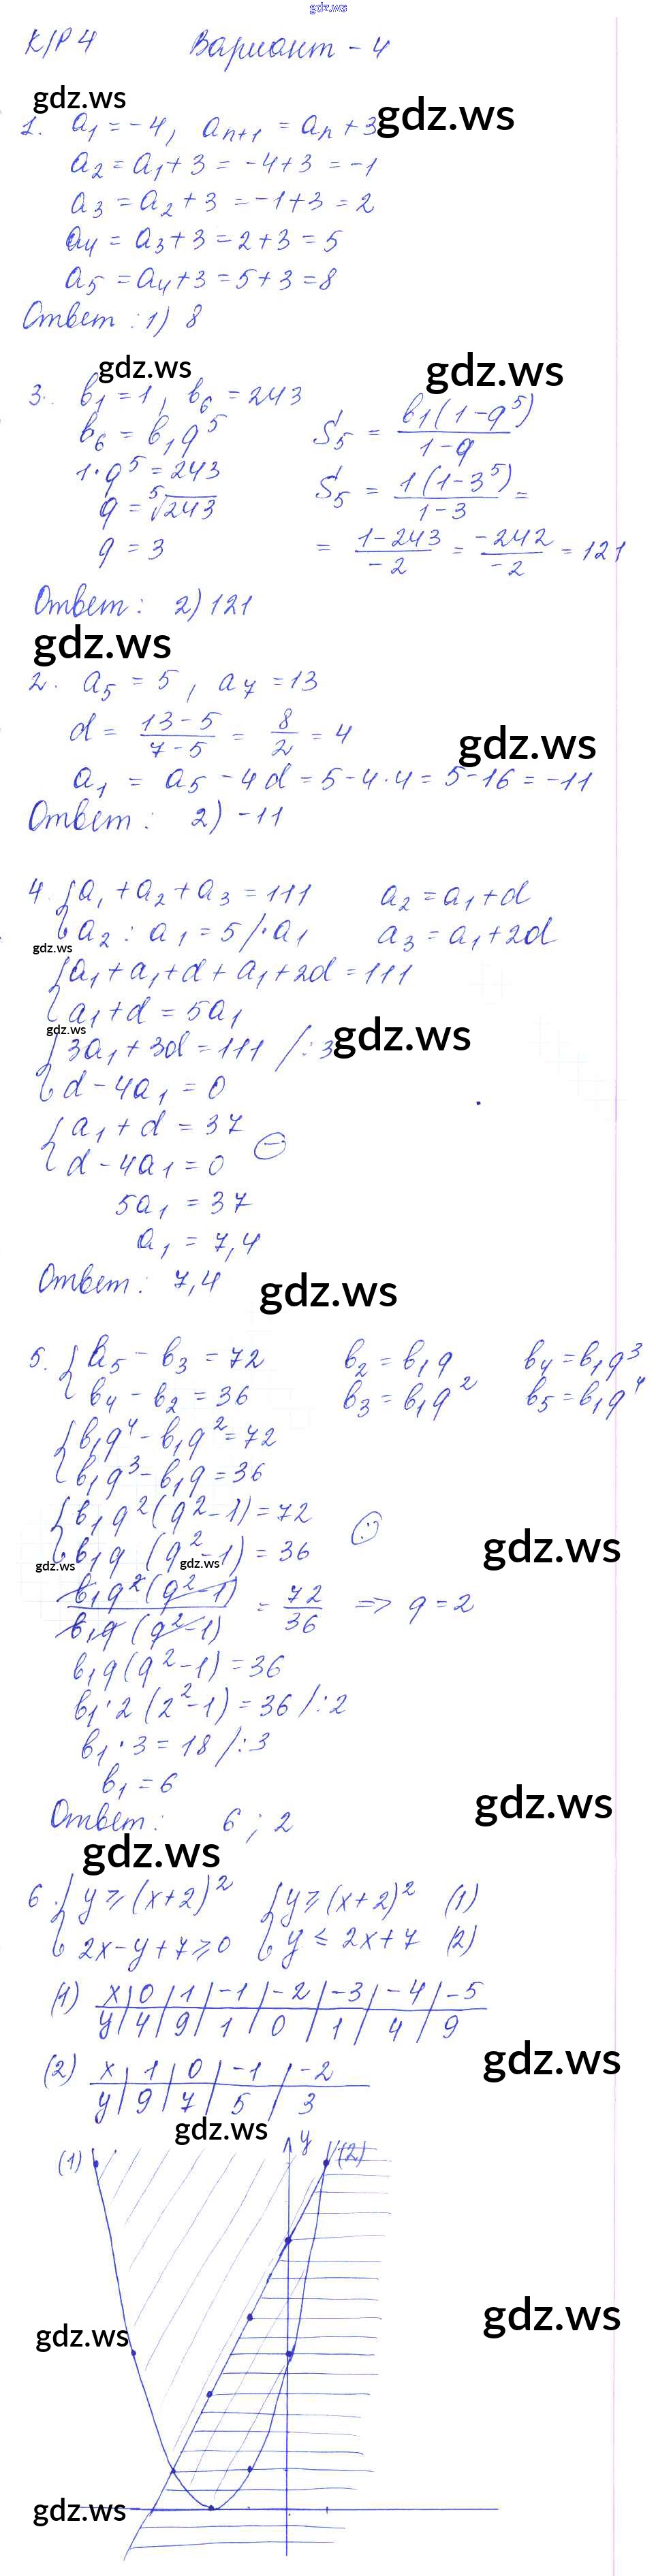 gdz.ws
К/Р 4 Вариант - 4
gdz.ws
1. a₁ = -4, aₙ₊₁ = aₙ + 3 gdz.ws
a₂ = a₁ + 3 = -4+3 = -1
a₃ = a₂ + 3 = -1+3 = 2
a₄ = a₃ + 3 = 2+3 = 5
a₅ = a₄ + 3 = 5+3 = 8
Ответ: 1) 8
gdz.ws gdz.ws
3. b₁ = 1, b₆ = 243
b₆ = b₁q⁵ S₅ = b₁(1-q⁵)/(1-q)
1·q⁵ = 243
q = ⁵√243 S₅ = 1(1-3⁵)/(1-3) =
q = 3 = (1-243)/(-2) = (-242)/(-2) = 121
Ответ: 2) 121
gdz.ws
2. a₅ = 5, a₇ = 13
d = (13-5)/(7-5) = 8/2 = 4 gdz.ws
a₁ = a₅ - 4d = 5-4·4 = 5-16 = -11
Ответ: 2) -11
4. { a₁ + a₂ + a₃ = 111 a₂ = a₁ + d
a₂ : a₁ = 5 /·a₁ a₃ = a₁ + 2d
gdz.ws
{ a₁ + a₁ + d + a₁ + 2d = 111
a₁ + d = 5a₁
gdz.ws gdz.ws
{ 3a₁ + 3d = 111 /:3
d - 4a₁ = 0
{ a₁ + d = 37
d - 4a₁ = 0 (-)
5a₁ = 37
a₁ = 7,4
Ответ: 7,4 gdz.ws
5. { b₅ - b₃ = 72 b₂ = b₁q b₄ = b₁q³
b₄ - b₂ = 36 b₃ = b₁q² b₅ = b₁q⁴
{ b₁q⁴ - b₁q² = 72
b₁q³ - b₁q = 36
{ b₁q²(q²-1) = 72
b₁q (q²-1) = 36 (:) gdz.ws
gdz.ws gdz.ws
b₁q²(q²-1)/b₁q(q²-1) = 72/36 => q = 2
b₁q(q²-1) = 36
b₁·2(2²-1) = 36 /:2
b₁·3 = 18 /:3
b₁ = 6
Ответ: 6; 2 gdz.ws
gdz.ws
6. { y ≥ (x+2)² { y ≥ (x+2)² (1)
2x-y+7 ≥ 0 y ≤ 2x+7 (2)
(1) x | 0 | 1 | -1 | -2 | -3 | -4 | -5
y | 4 | 9 | 1 | 0 | 1 | 4 | 9
gdz.ws
(2) x | 1 | 0 | -1 | -2
y | 9 | 7 | 5 | 3
gdz.ws
(1) y (2)
gdz.ws
gdz.ws
gdz.ws